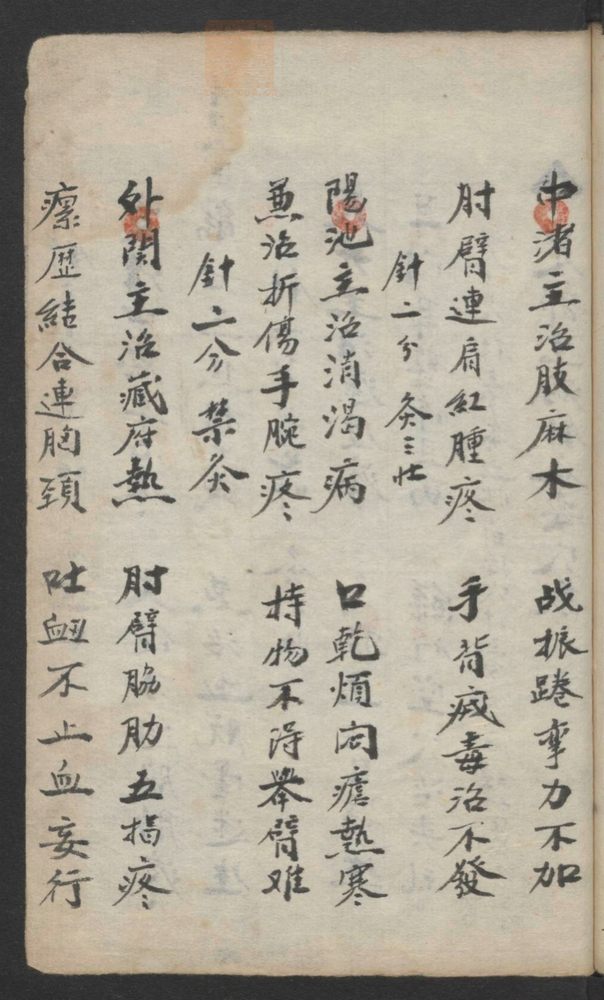 中渚主治肢麻木 战振踡挛力不加
肘臂連肩紅腫疼 手背瘫毒治不發
針二分 灸三壮
陽池主治消渴病 口乾煩闷瘧熱寒
兼治折傷手腕疼 持物不得举臂难
針二分 禁灸
外関主治臧府熱 肘臂脇肋五指疼
瘰歴結合連胸頚 吐衄不止血妄行